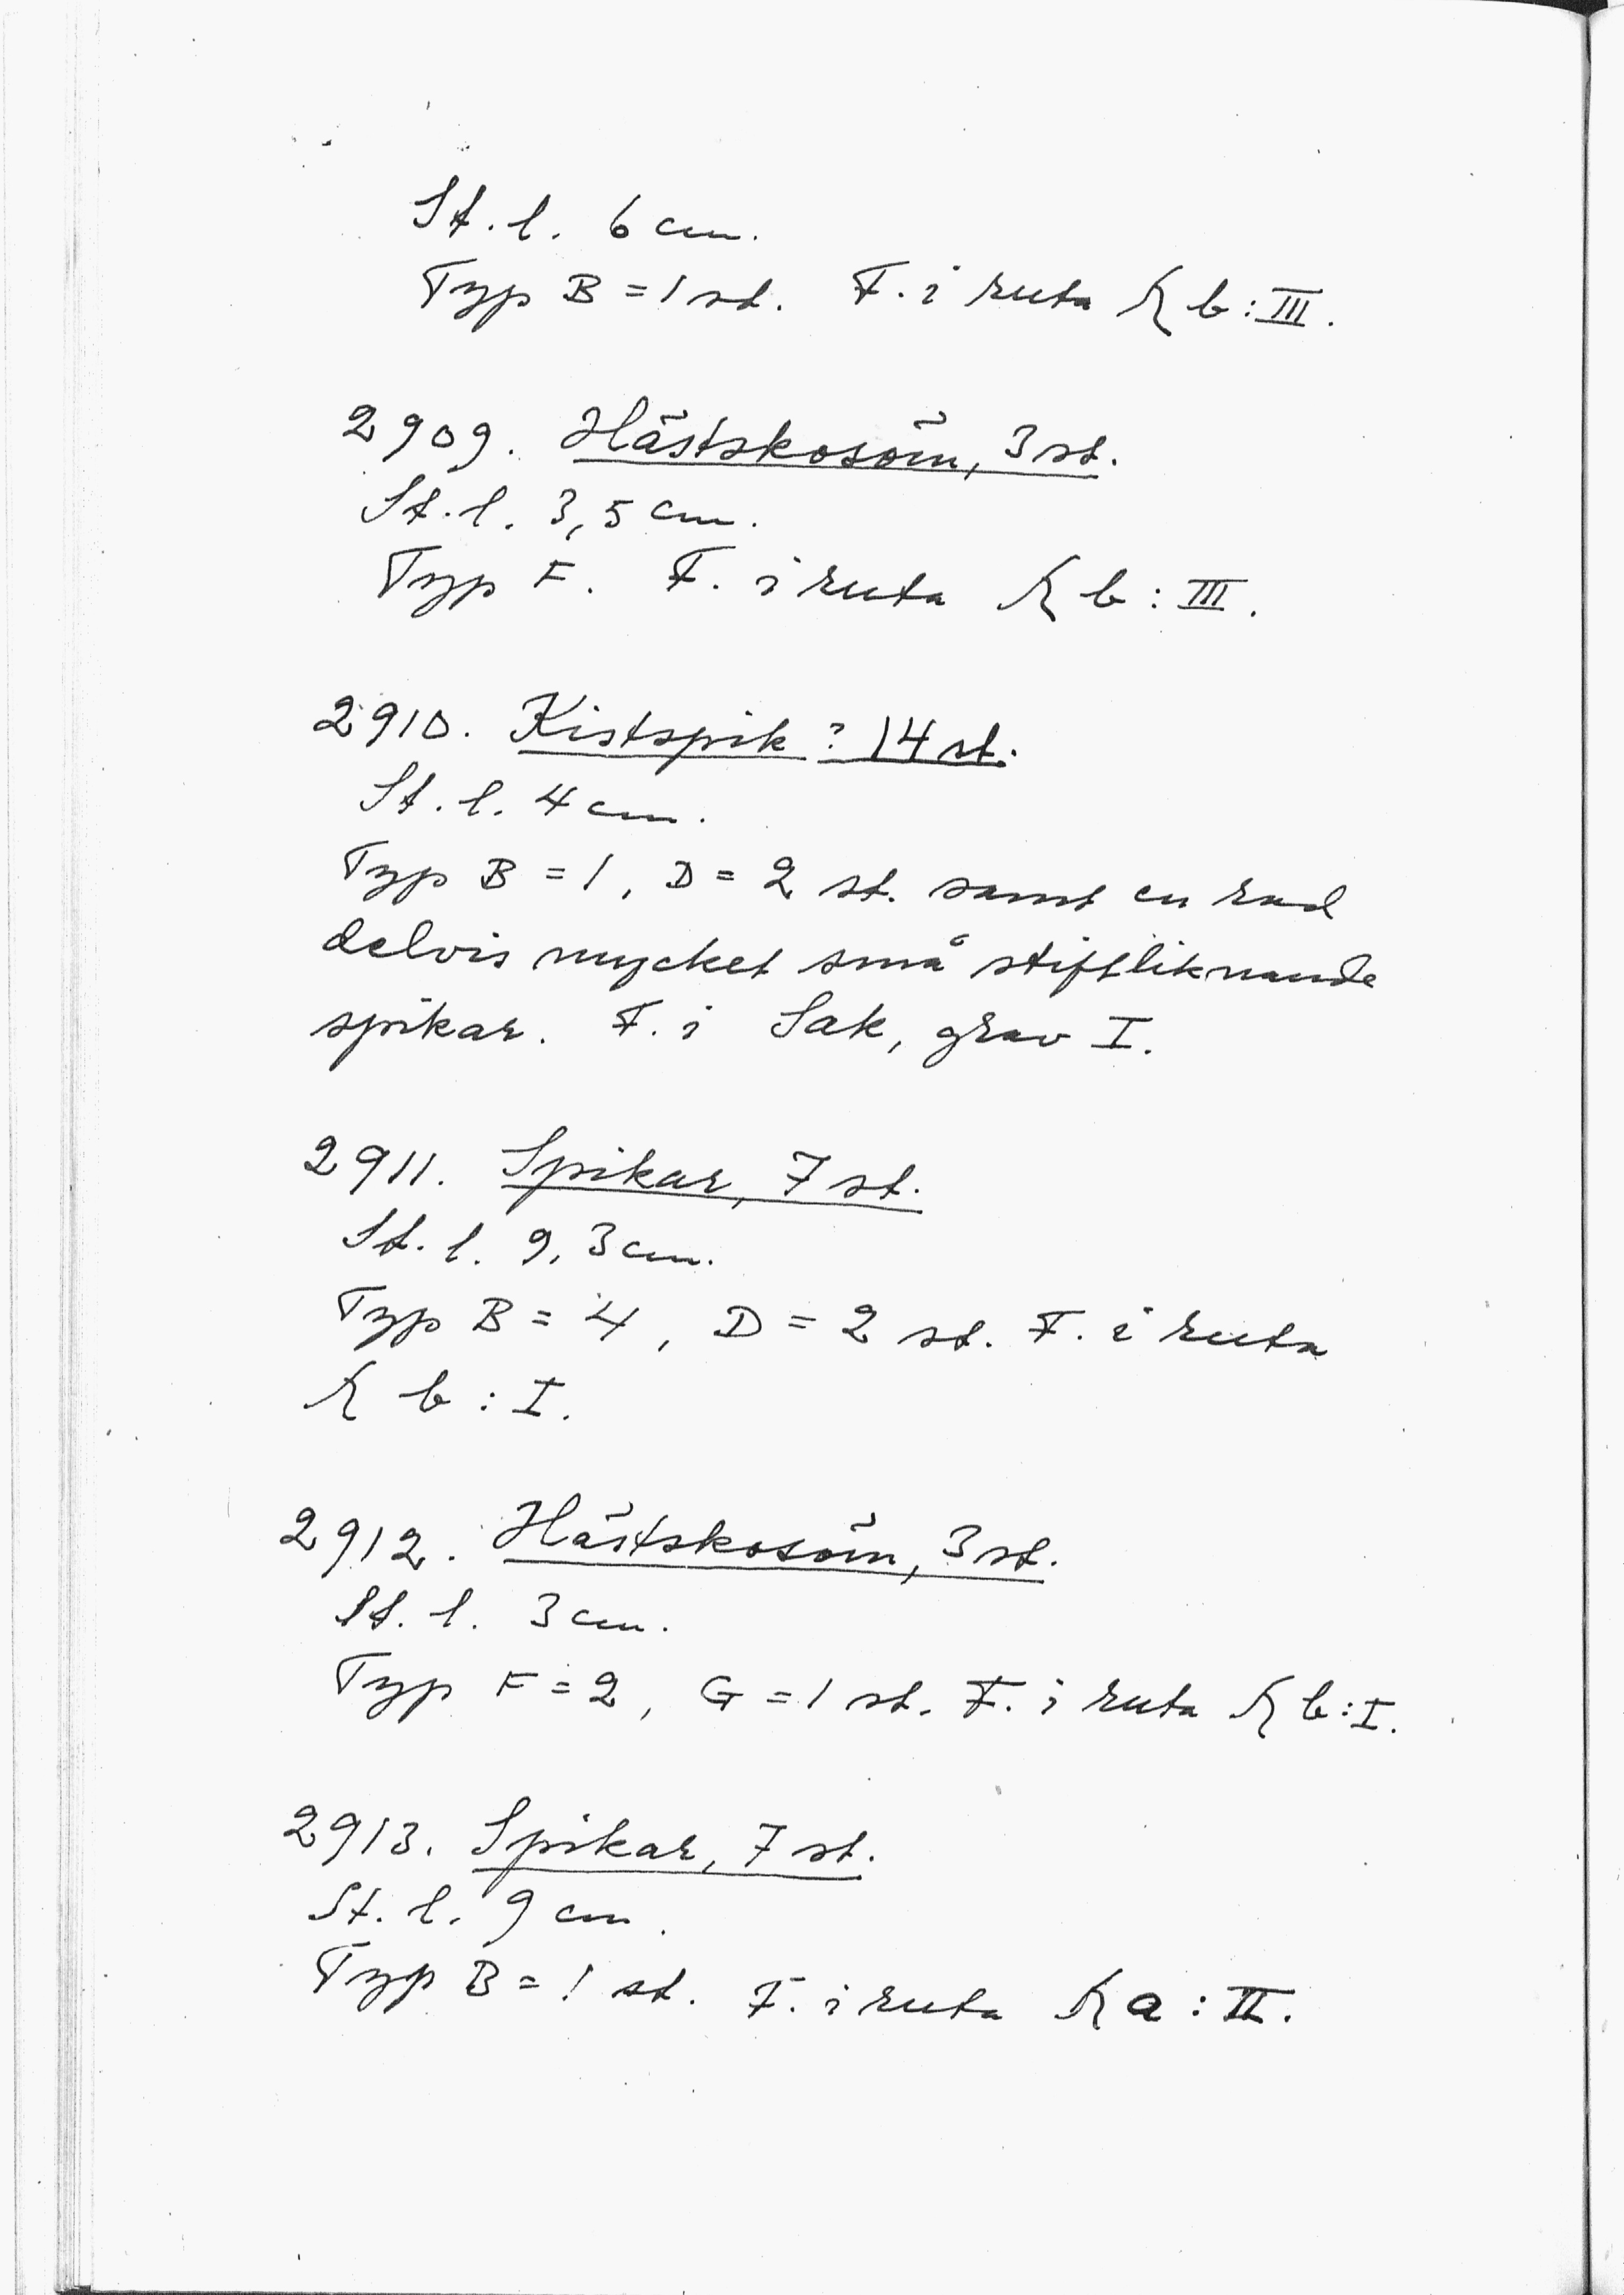 St. l. 6 cm.
Typ B = 1 st. F. i ruta K b : III.
2909. Hästskosöm, 3 st.
St. l. 3,5 cm.
Typ F. F. i ruta K b : III.
2910. Kistspik ? 14 st.
St. l. 4 cm.
Typ B = 1, D = 2 st. samt en rad
delvis mycket små stiftliknande
spikar. F. i Sak, grav I.
2911. Spikar, 7 st.
St. l. 9,3 cm.
Typ B = 4, D = 2 st. F. i ruta
K b : I.
2912. Hästskosöm, 3 st.
St. l. 3 cm.
Typ F = 2, G = 1 st. F. i ruta K b : I.
2913. Spikar, 7 st.
St. l. 9 cm.
Typ B = 1 st. F. i ruta K a : II.